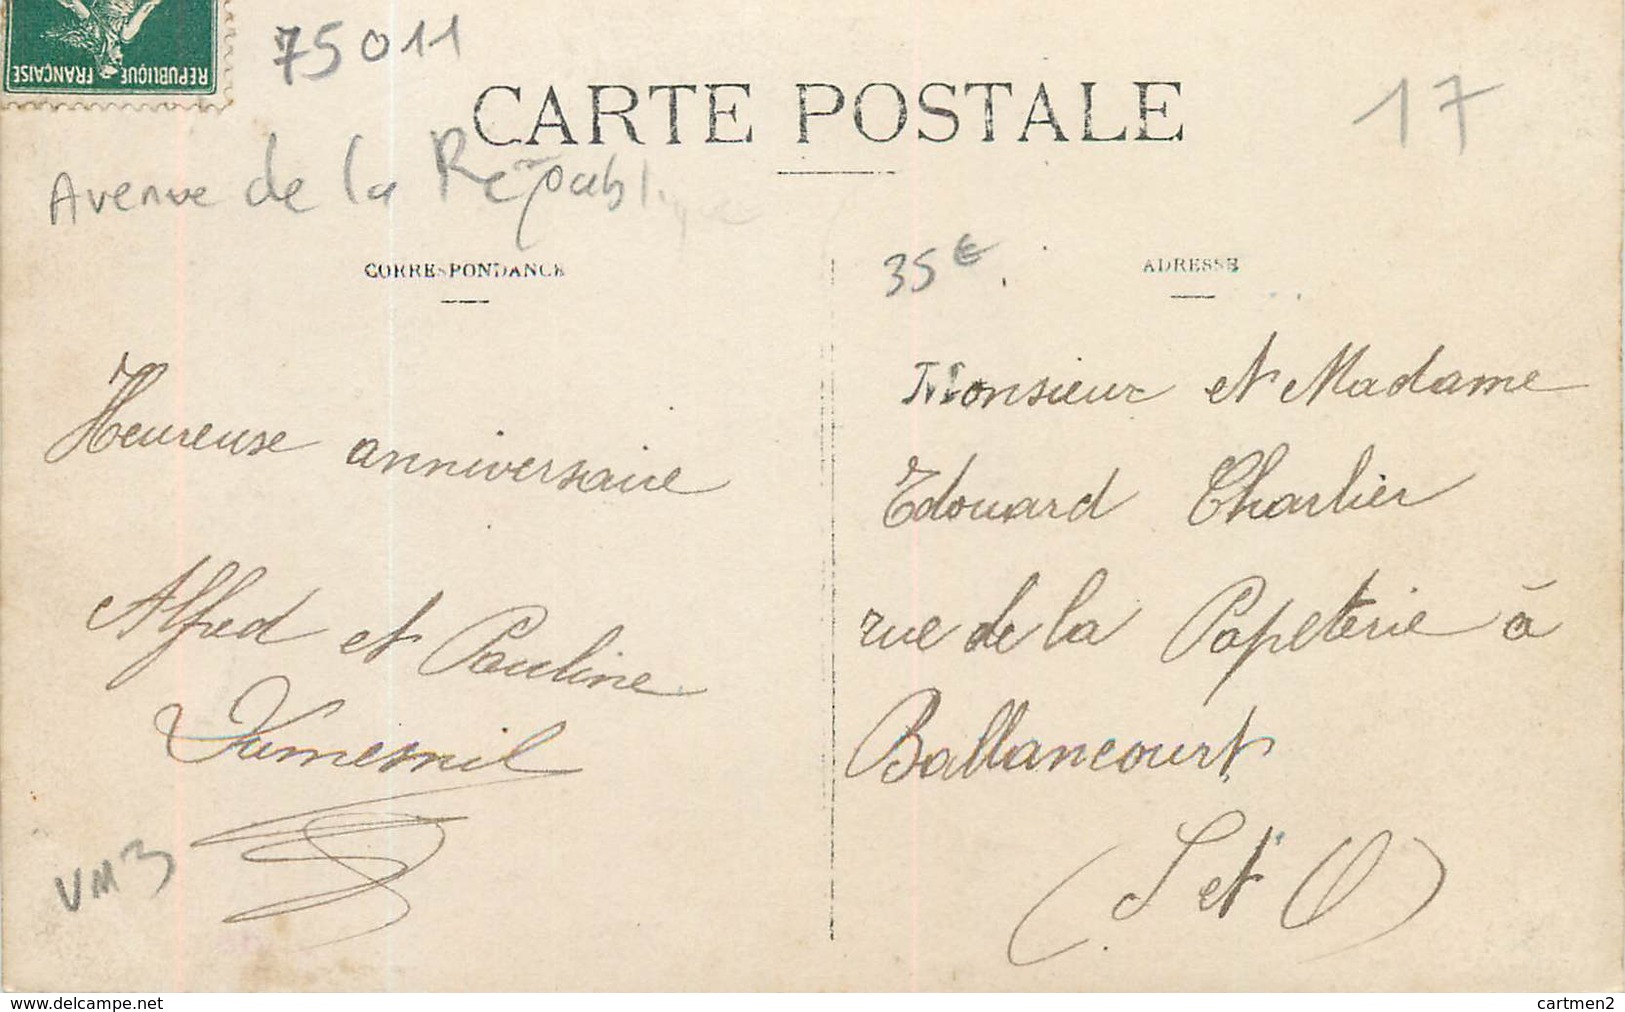 REPUBLIQUE FRANÇAISE
75011
CARTE POSTALE
17
Avenue de la République
CORRESPONDANCE
35€
ADRESSE
Heureuse anniversaire
Alfred et Pauline
Dumesnil
VM3
Monsieur et Madame
Edouard Charlier
rue de la Papeterie à
Ballancourt
(S et O)
www.delcampe.net
cartmen2